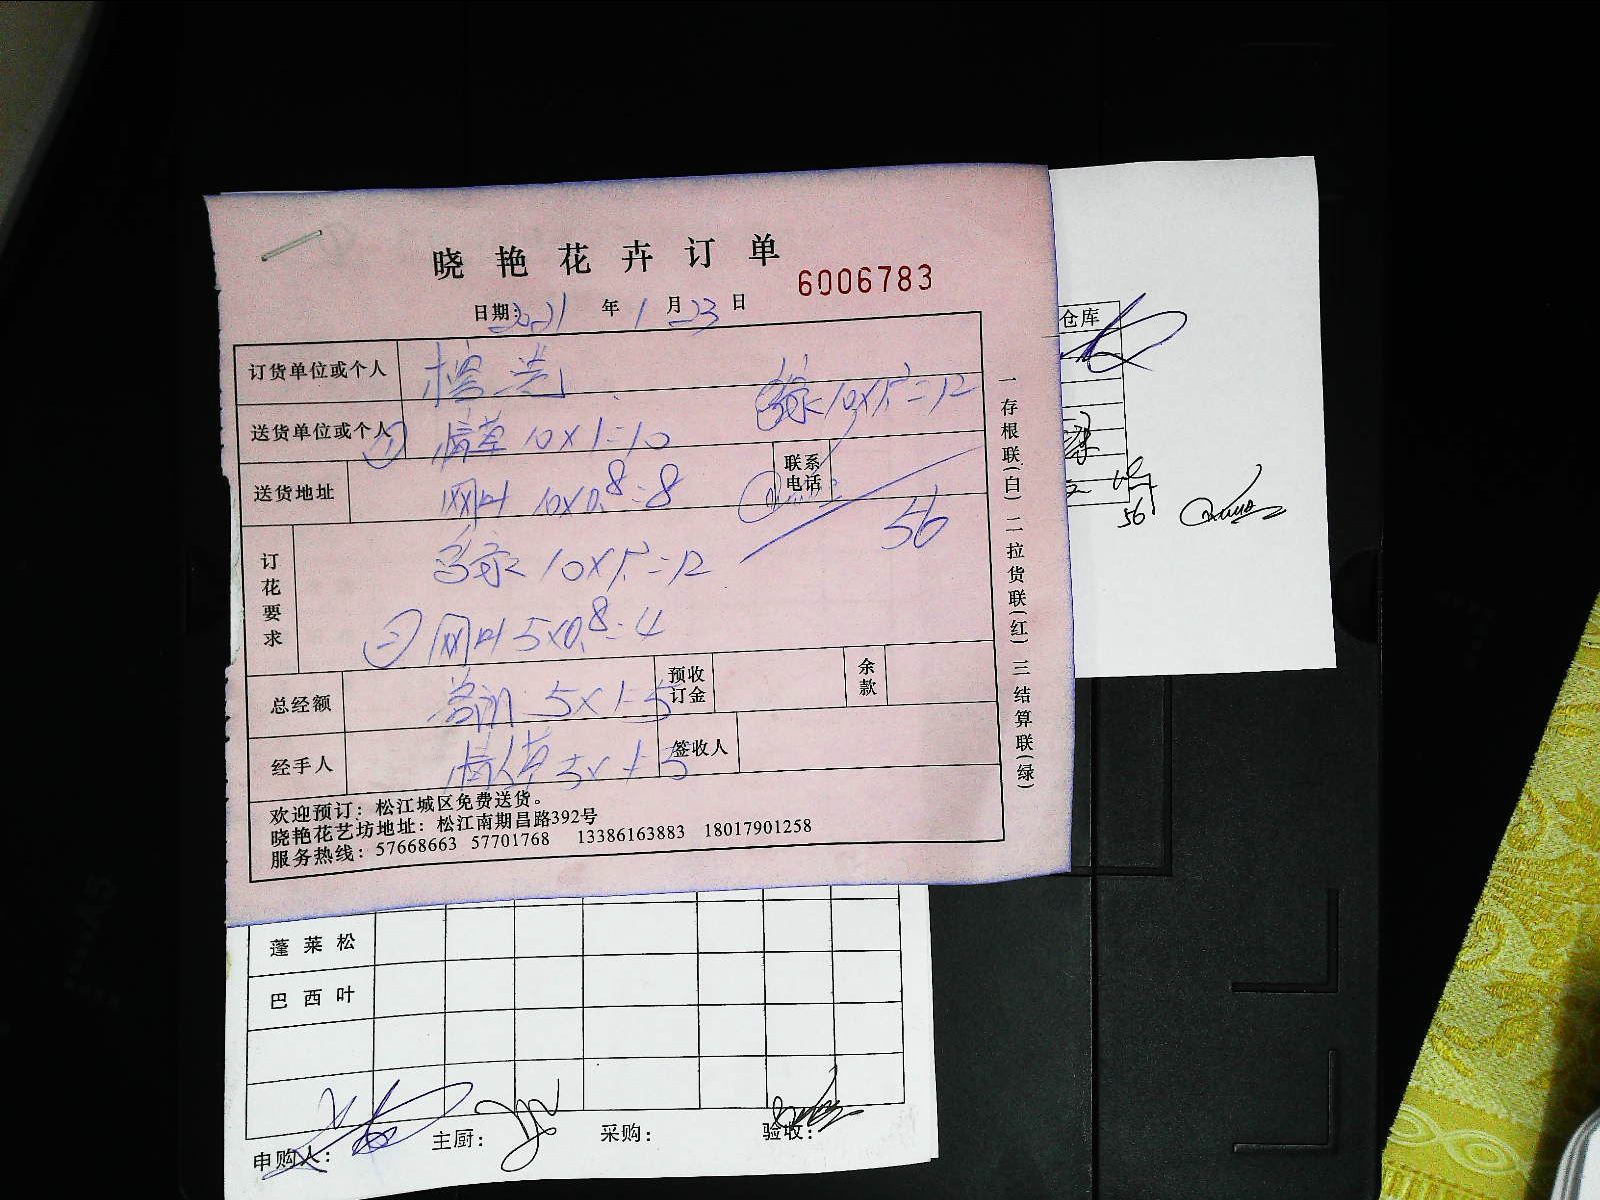 晓艳花卉订单
6006783
日期: 2021 年 1 月 23 日
订货单位或个人
送货单位或个人 ① 情草 10×1=10
10×1.2=12
送货地址 网叶 10×0.8=8
联系电话
56
订花要求
10×1.2=12
② 网叶 5×0.8=4
总经额 5×1=5
预收订金
余款
经手人 情人草 5×1=5
签收人
欢迎预订：松江城区免费送货。
晓艳花艺坊地址：松江南期昌路392号
服务热线：57668663 57701768 13386163883 18017901258
一存根联(白) 二拉货联(红) 三结算联(绿)
仓库
56
蓬莱松
巴西叶
申购人：
主厨：
采购：
验收：